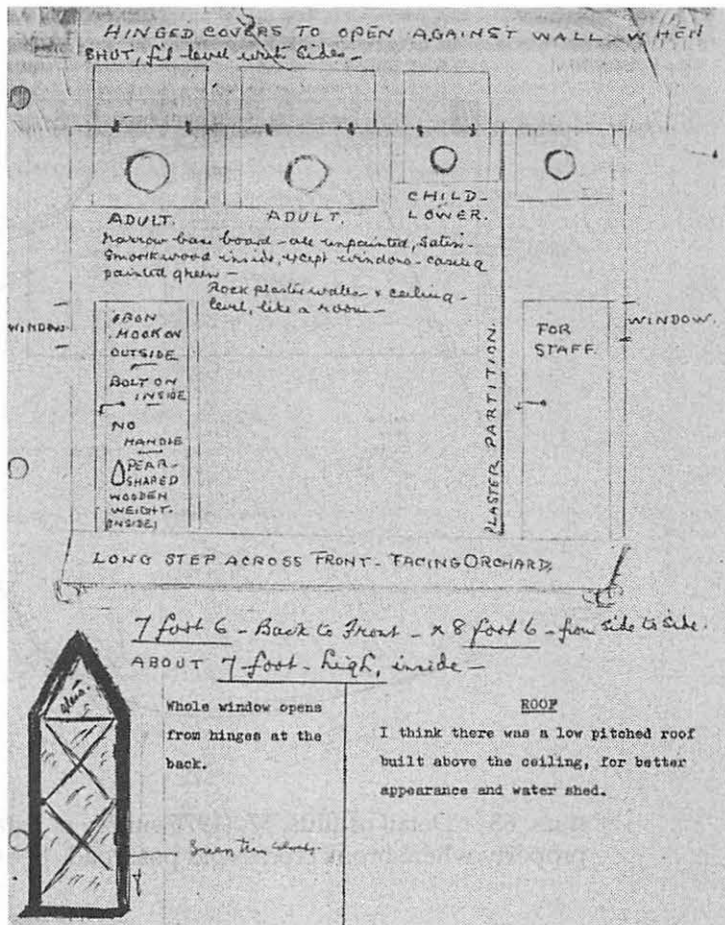 HINGED COVERS TO OPEN AGAINST WALL - WHEN
SHUT, fit level with sides -
ADULT.
ADULT.
CHILD-
LOWER.
narrow base board - all unpainted, satin-
smooth wood inside, except windows - casing
painted green -
Rock plaster walls & ceiling -
level, like a room -
WINDOW.
IRON
HOOK ON
OUTSIDE
BOLT ON
INSIDE
NO
HANDLE
PEAR-
SHAPED
WOODEN
WEIGHT.
INSIDE;
PLASTER PARTITION.
FOR
STAFF.
WINDOW.
LONG STEP ACROSS FRONT - FACING ORCHARD,
7 foot 6 - Back to Front - x 8 foot 6 - from side to side.
ABOUT 7 foot - high, inside -
glass.
Whole window opens
from hinges at the
back.
ROOF
I think there was a low pitched roof
built above the ceiling, for better
appearance and water shed.
Green